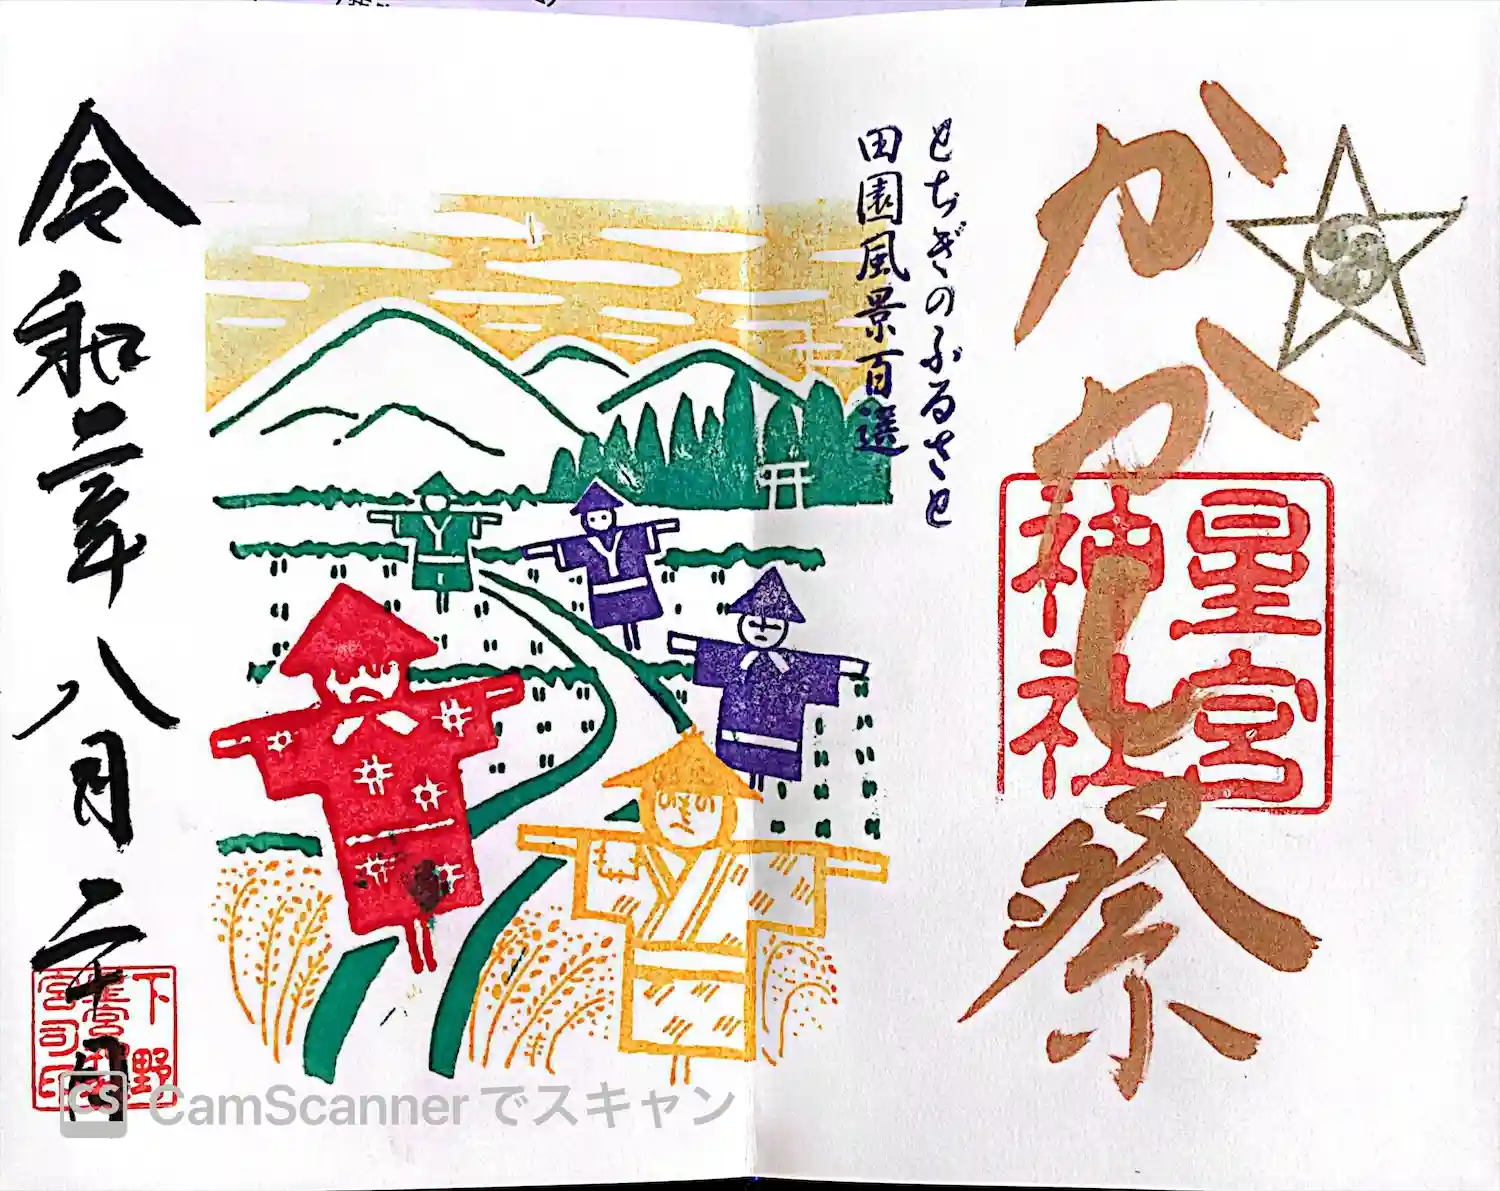 かかし祭
星宮
神社
とちぎのふるさと
田園風景百選
令和二年八月二十日
下野
宮司印
CS CamScanner でスキャン